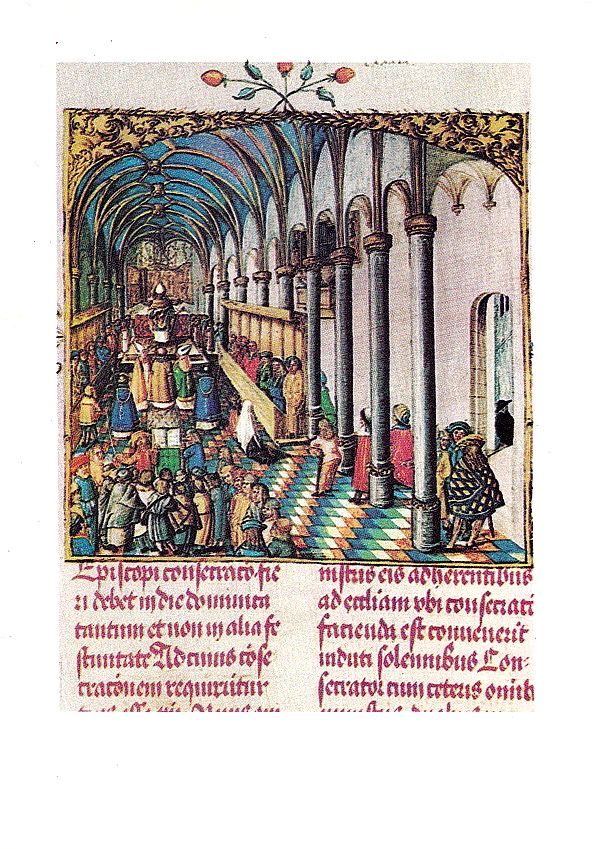 Episcopi consecratō fie
ri debet in die dominica
tantum et non in alia fe
stiuitate Ad cuius cōse
cracionem requirūtur
nistus eis adherentibus
ad eccliam vbi consecrati
facienda est conuenerit
induti solennibus Con-
secrator cum ceteris